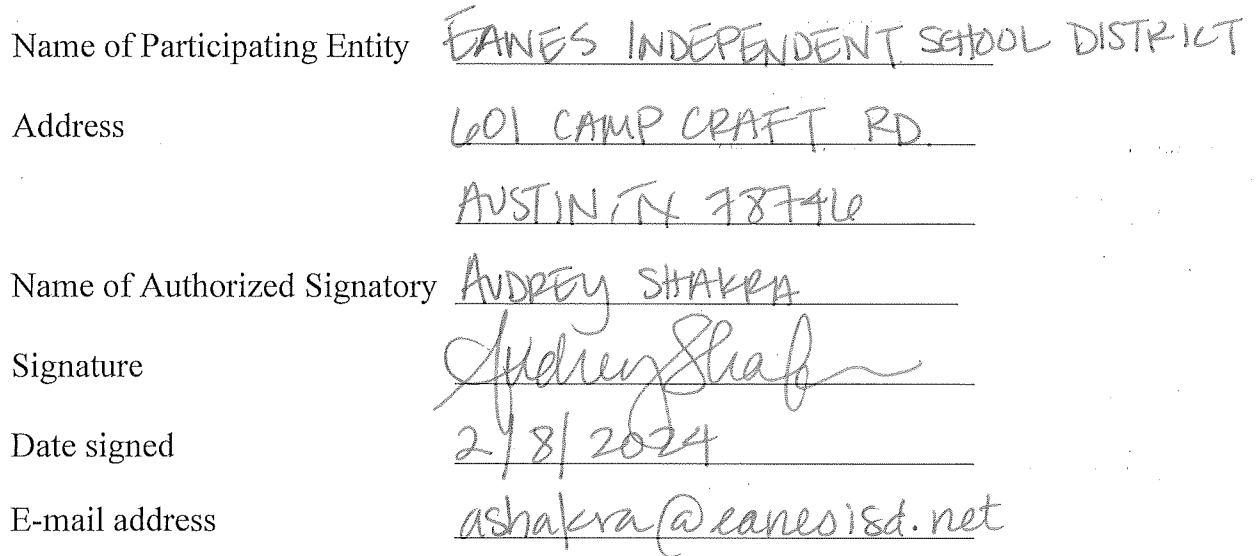 Name of Participating Entity EANES INDEPENDENT SCHOOL DISTRICT
Address 601 CAMP CRAFT RD.
AUSTIN, TX 78746
Name of Authorized Signatory AUDREY SHAKRA
Signature Audrey Shakra
Date signed 2/8/2024
E-mail address ashakra@eanesisd.net